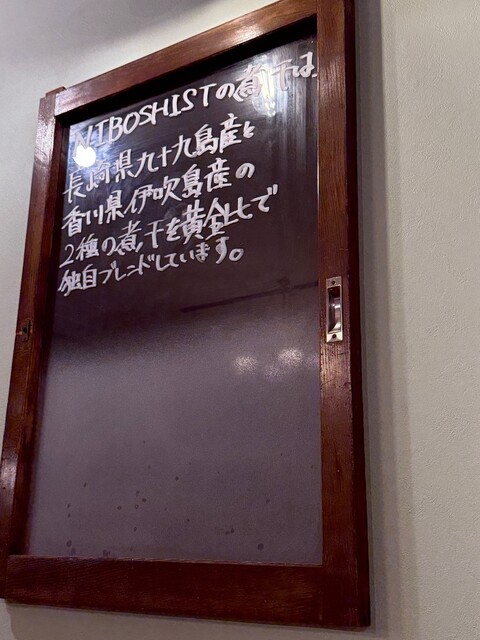 NIBOSHISTの煮干は
長崎県九十九島産と
香川県伊吹島産の
2種の煮干を黄金比で
独自ブレンドしています。